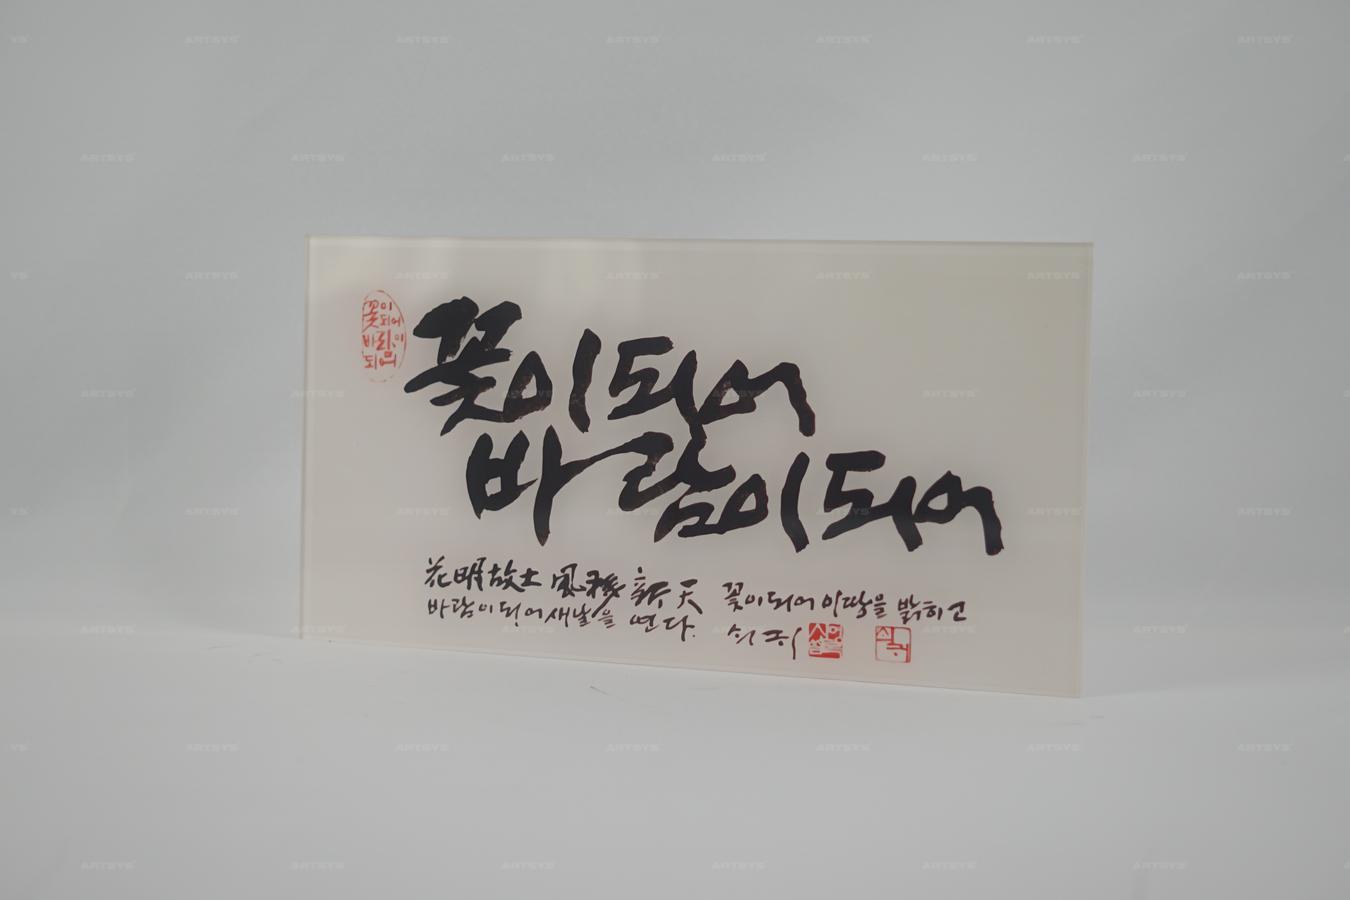 꽃이
되어
바람이
되어
꽃이되어
바람이되어
花明故土 風 新天 꽃이되어 이땅을 밝히고
바람이되어새날을 연다.
ARTSYS